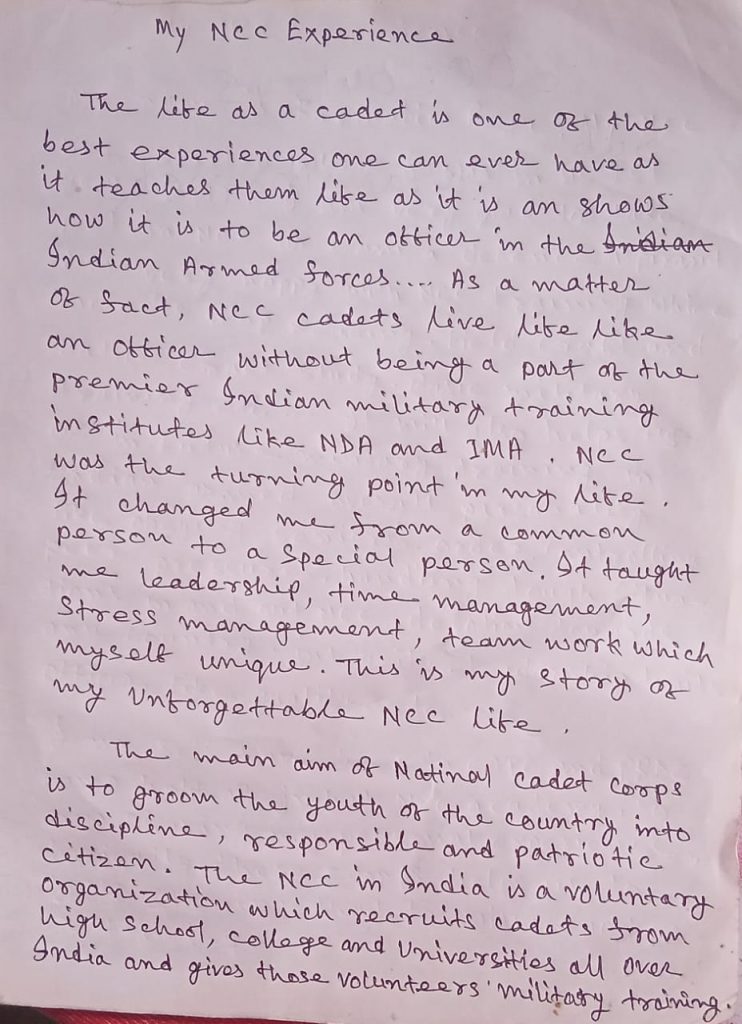 My Ncc Experience
The life as a cadet is one of the
best experiences one can ever have as
it teaches them life as it is an shows
how it is to be an officer in the Indian
Indian Armed forces.... As a matter
of fact, Ncc cadets live life like
an officer without being a part of the
premier Indian military training
institutes like NDA and IMA. Ncc
was the turning point in my life.
It changed me from a common
person to a special person. It taught
me leadership, time management,
Stress management, team work which
myself unique. This is my story of
my Unforgettable Ncc life.
The main aim of Natinal Cadet Corps
is to groom the youth of the country into
discipline, responsible and patriotic
citizen. The Ncc in India is a voluntary
organization which recruits cadets from
high school, college and Universities all over
India and gives those volunteers' military training.